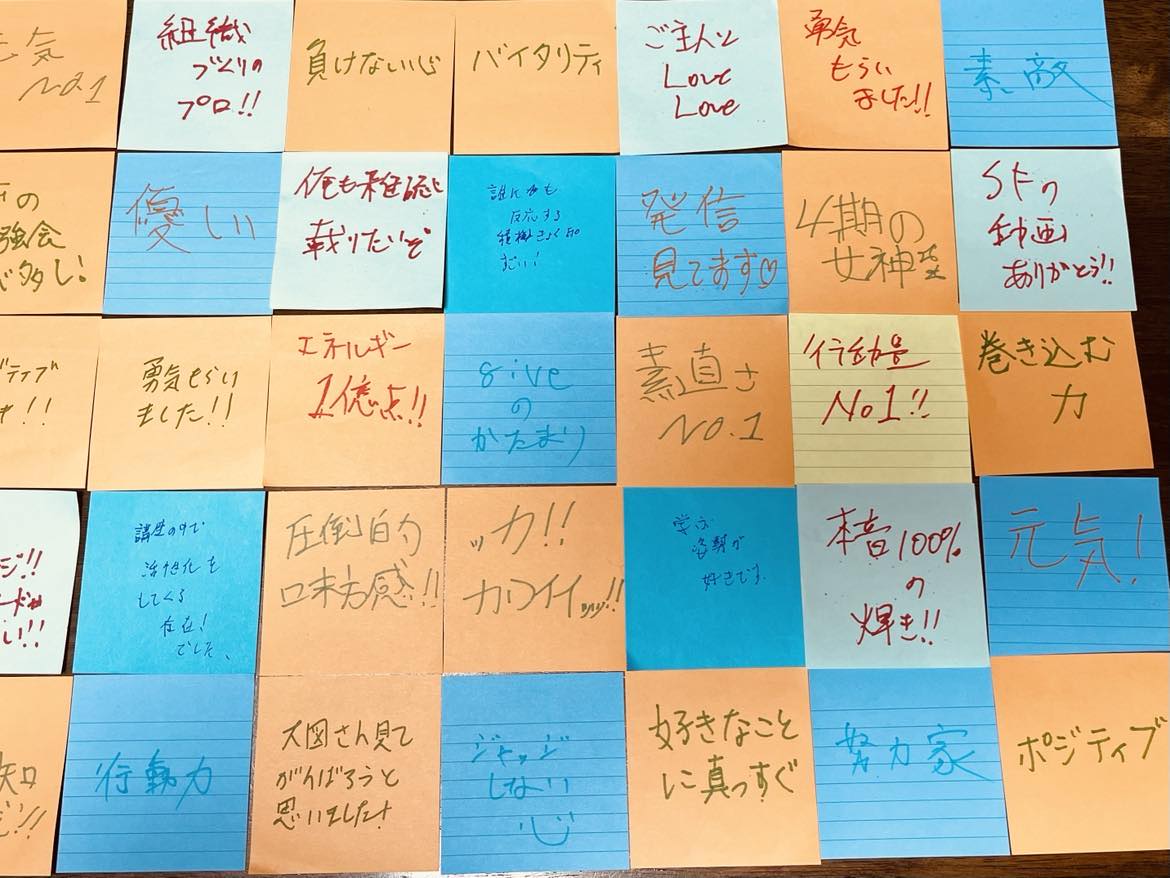 元気
No.1
組織
づくりの
プロ!!
負けない心
バイタリティ
ご主人と
Love
Love
勇気
もらい
ました!!
素敵
の
強会
多し!
優しい
俺も雑誌に
載りたいぞ
誰にでも
反応する
発信
見てます♡
4期の
女神
SFの
動画
ありがとう!!
ティブ
!!
勇気もらい
ました!!
エネルギー
1億点!!
giveの
かたまり
素直さ
No.1
行動量
No1!!
巻き込む
力
ジ!!
い!!!
講座の中で
活性化を
してくる
存在!
でした、
圧倒的
味方感!!
ッカ!!
カワイイッッ!!
学ぶ
姿勢が
好きです。
本音100%
の
輝き!!
元気!
知
!!
行動力
大図さん見て
がんばろうと
思いました!
ジャッジ
しない
心
好きなこと
に真っすぐ
努力家
ポジティブ